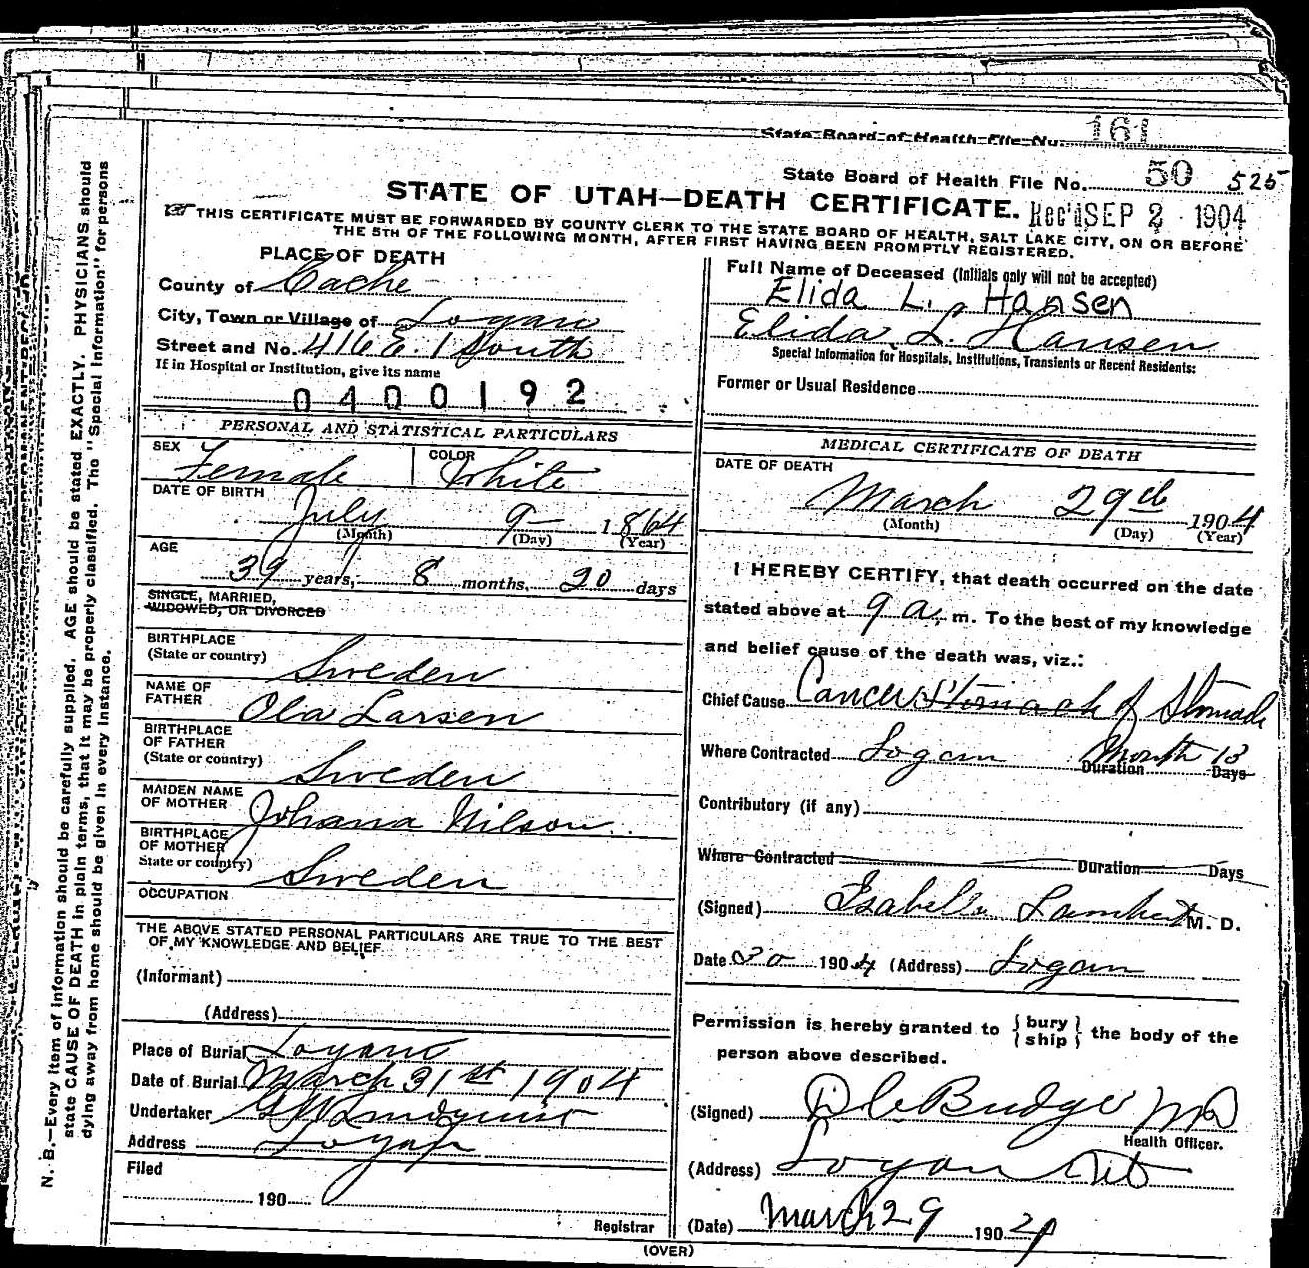 State Board of Health File No. 161
State Board of Health File No. 50 525
STATE OF UTAH—DEATH CERTIFICATE. Rec'd SEP 2 1904
THIS CERTIFICATE MUST BE FORWARDED BY COUNTY CLERK TO THE STATE BOARD OF HEALTH, SALT LAKE CITY, ON OR BEFORE
THE 5TH OF THE FOLLOWING MONTH, AFTER FIRST HAVING BEEN PROMPTLY REGISTERED.
PLACE OF DEATH
County of Cache
City, Town or Village of Logan
Street and No. 416 E. 1 South
If in Hospital or Institution, give its name
0400192
PERSONAL AND STATISTICAL PARTICULARS
SEX Female COLOR White
DATE OF BIRTH
July 9 1864
(Month) (Day) (Year)
AGE
39 years, 8 months, 20 days
SINGLE, MARRIED,
WIDOWED, OR DIVORCED
BIRTHPLACE
(State or country) Sweden
NAME OF
FATHER Ola Larsen
BIRTHPLACE
OF FATHER
(State or country) Sweden
MAIDEN NAME
OF MOTHER Johana Nilson
BIRTHPLACE
OF MOTHER
State or country) Sweden
OCCUPATION
THE ABOVE STATED PERSONAL PARTICULARS ARE TRUE TO THE BEST
OF MY KNOWLEDGE AND BELIEF.
(Informant)
(Address)
Place of Burial Logan
Date of Burial March 31st 1904
Undertaker G W Lindquist
Address Logan
Filed
190
Registrar
Full Name of Deceased (Initials only will not be accepted)
Elida L. Hansen
Elida L. Hansen
Special Information for Hospitals, Institutions, Transients or Recent Residents:
Former or Usual Residence
MEDICAL CERTIFICATE OF DEATH
DATE OF DEATH
March 29th 1904
(Month) (Day) (Year)
I HEREBY CERTIFY, that death occurred on the date
stated above at 9 a. m. To the best of my knowledge
and belief cause of the death was, viz.:
Chief Cause Cancer Stomach of Stomach
Where Contracted Logan Duration Month 13 Days
Contributory (if any)
Where Contracted Duration Days
(Signed) Isabella Lambert M. D.
Date 30 1904 (Address) Logan
Permission is hereby granted to {bury ship} the body of the
person above described.
(Signed) D C Budge MD
Health Officer.
(Address) Logan Ut
(Date) March 29 1904
(OVER)
N. B.—Every item of information should be carefully supplied. AGE should be stated EXACTLY. PHYSICIANS should
state CAUSE OF DEATH in plain terms, that it may be properly classified. The "Special Information" for persons
dying away from home should be given in every instance.